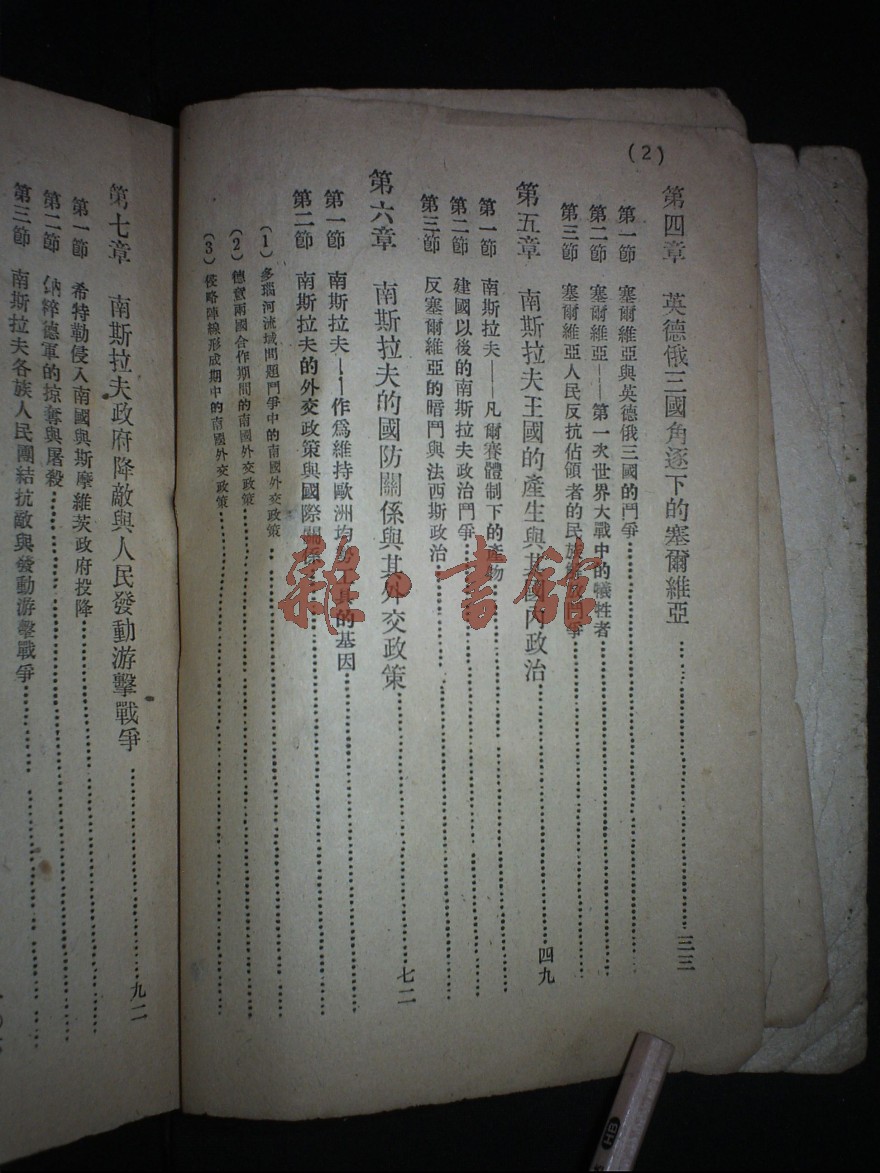 (2)
第四章 英德俄三國角逐下的塞爾維亞……三三
第一節 塞爾維亞與英德俄三國的鬥爭……
第二節 塞爾維亞——第一次世界大戰中的犧牲者……
第三節 塞爾維亞人民反抗佔領者的民族解放鬥爭……
第五章 南斯拉夫王國的產生與其國內政治……四九
第一節 南斯拉夫——凡爾賽體制下的產物……
第二節 建國以後的南斯拉夫政治鬥爭……
第三節 反塞爾維亞的暗鬥與法西斯政治……
第六章 南斯拉夫的國防關係與其外交政策……七二
第一節 南斯拉夫——作爲維持歐洲均勢工具的基因……
第二節 南斯拉夫的外交政策與國際關係……
(1) 多瑙河流域問題鬥爭中的南國外交政策……
(2) 德意兩國合作期間的南國外交政策……
(3) 侵略陣線形成期中的南國外交政策……
第七章 南斯拉夫政府降敵與人民發動游擊戰爭……九二
第一節 希特勒侵入南國與斯摩維茨政府投降……
第二節 納粹德軍的掠奪與屠殺……
第三節 南斯拉夫各族人民團結抗敵與發動游擊戰爭……
雜·書館
HB